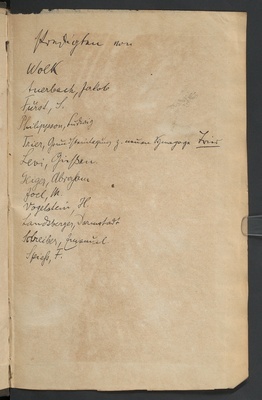 Predigten von
Wolk
Auerbach, Jakob
Fürst, S.
Philippson, Ludwig
Trier, Grundsteinlegung z. neuen Synagoge
Levi, Gießen
Geiger, Abraham
Joel, M.
Vogelstein, H.
Landsberger, Darmstadt
Schreiber, Emanuel
Spieß, F.